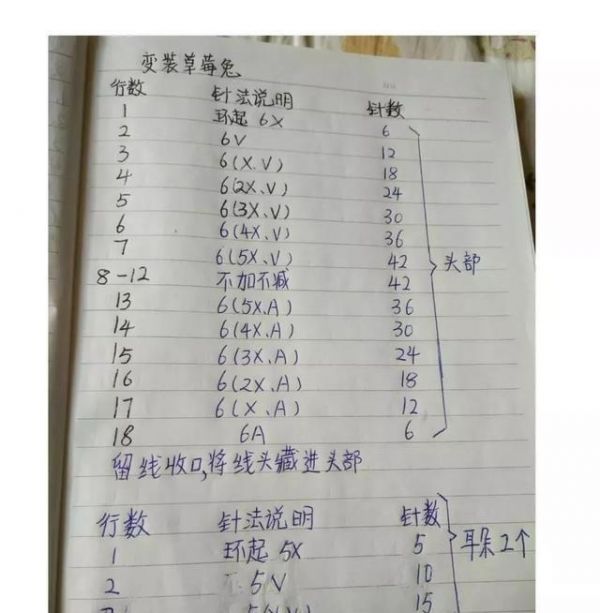 变装草莓兔
行数 针法说明 针数
1 环起 6X 6
2 6V 12
3 6(X.V) 18
4 6(2X.V) 24
5 6(3X.V) 30
6 6(4X.V) 36
7 6(5X.V) 42
8-12 不加不减 42
13 6(5X.A) 36
14 6(4X.A) 30
15 6(3X.A) 24
16 6(2X.A) 18
17 6(X.A) 12
18 6A 6
头部
留线收口,将线头藏进头部
行数 针法说明 针数
1 环起 5X 5
2 5V 10
15
耳朵2个